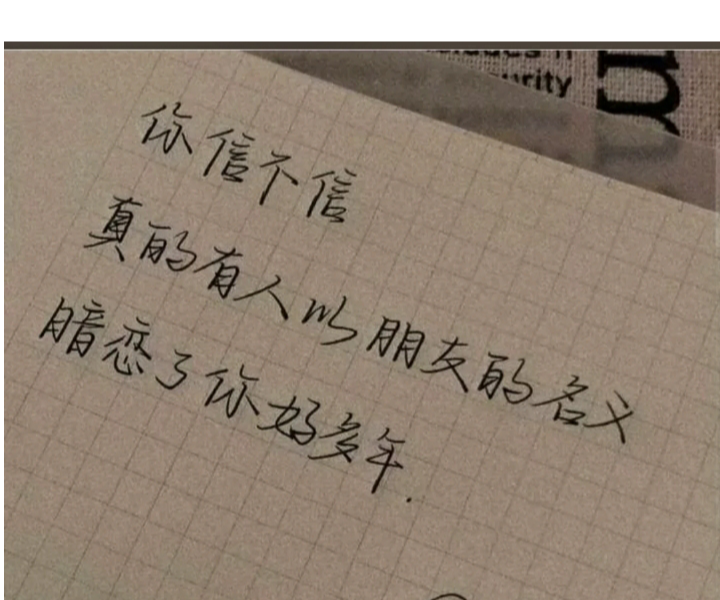 urity
你信不信
真的有人以朋友的名义
暗恋了你好多年.